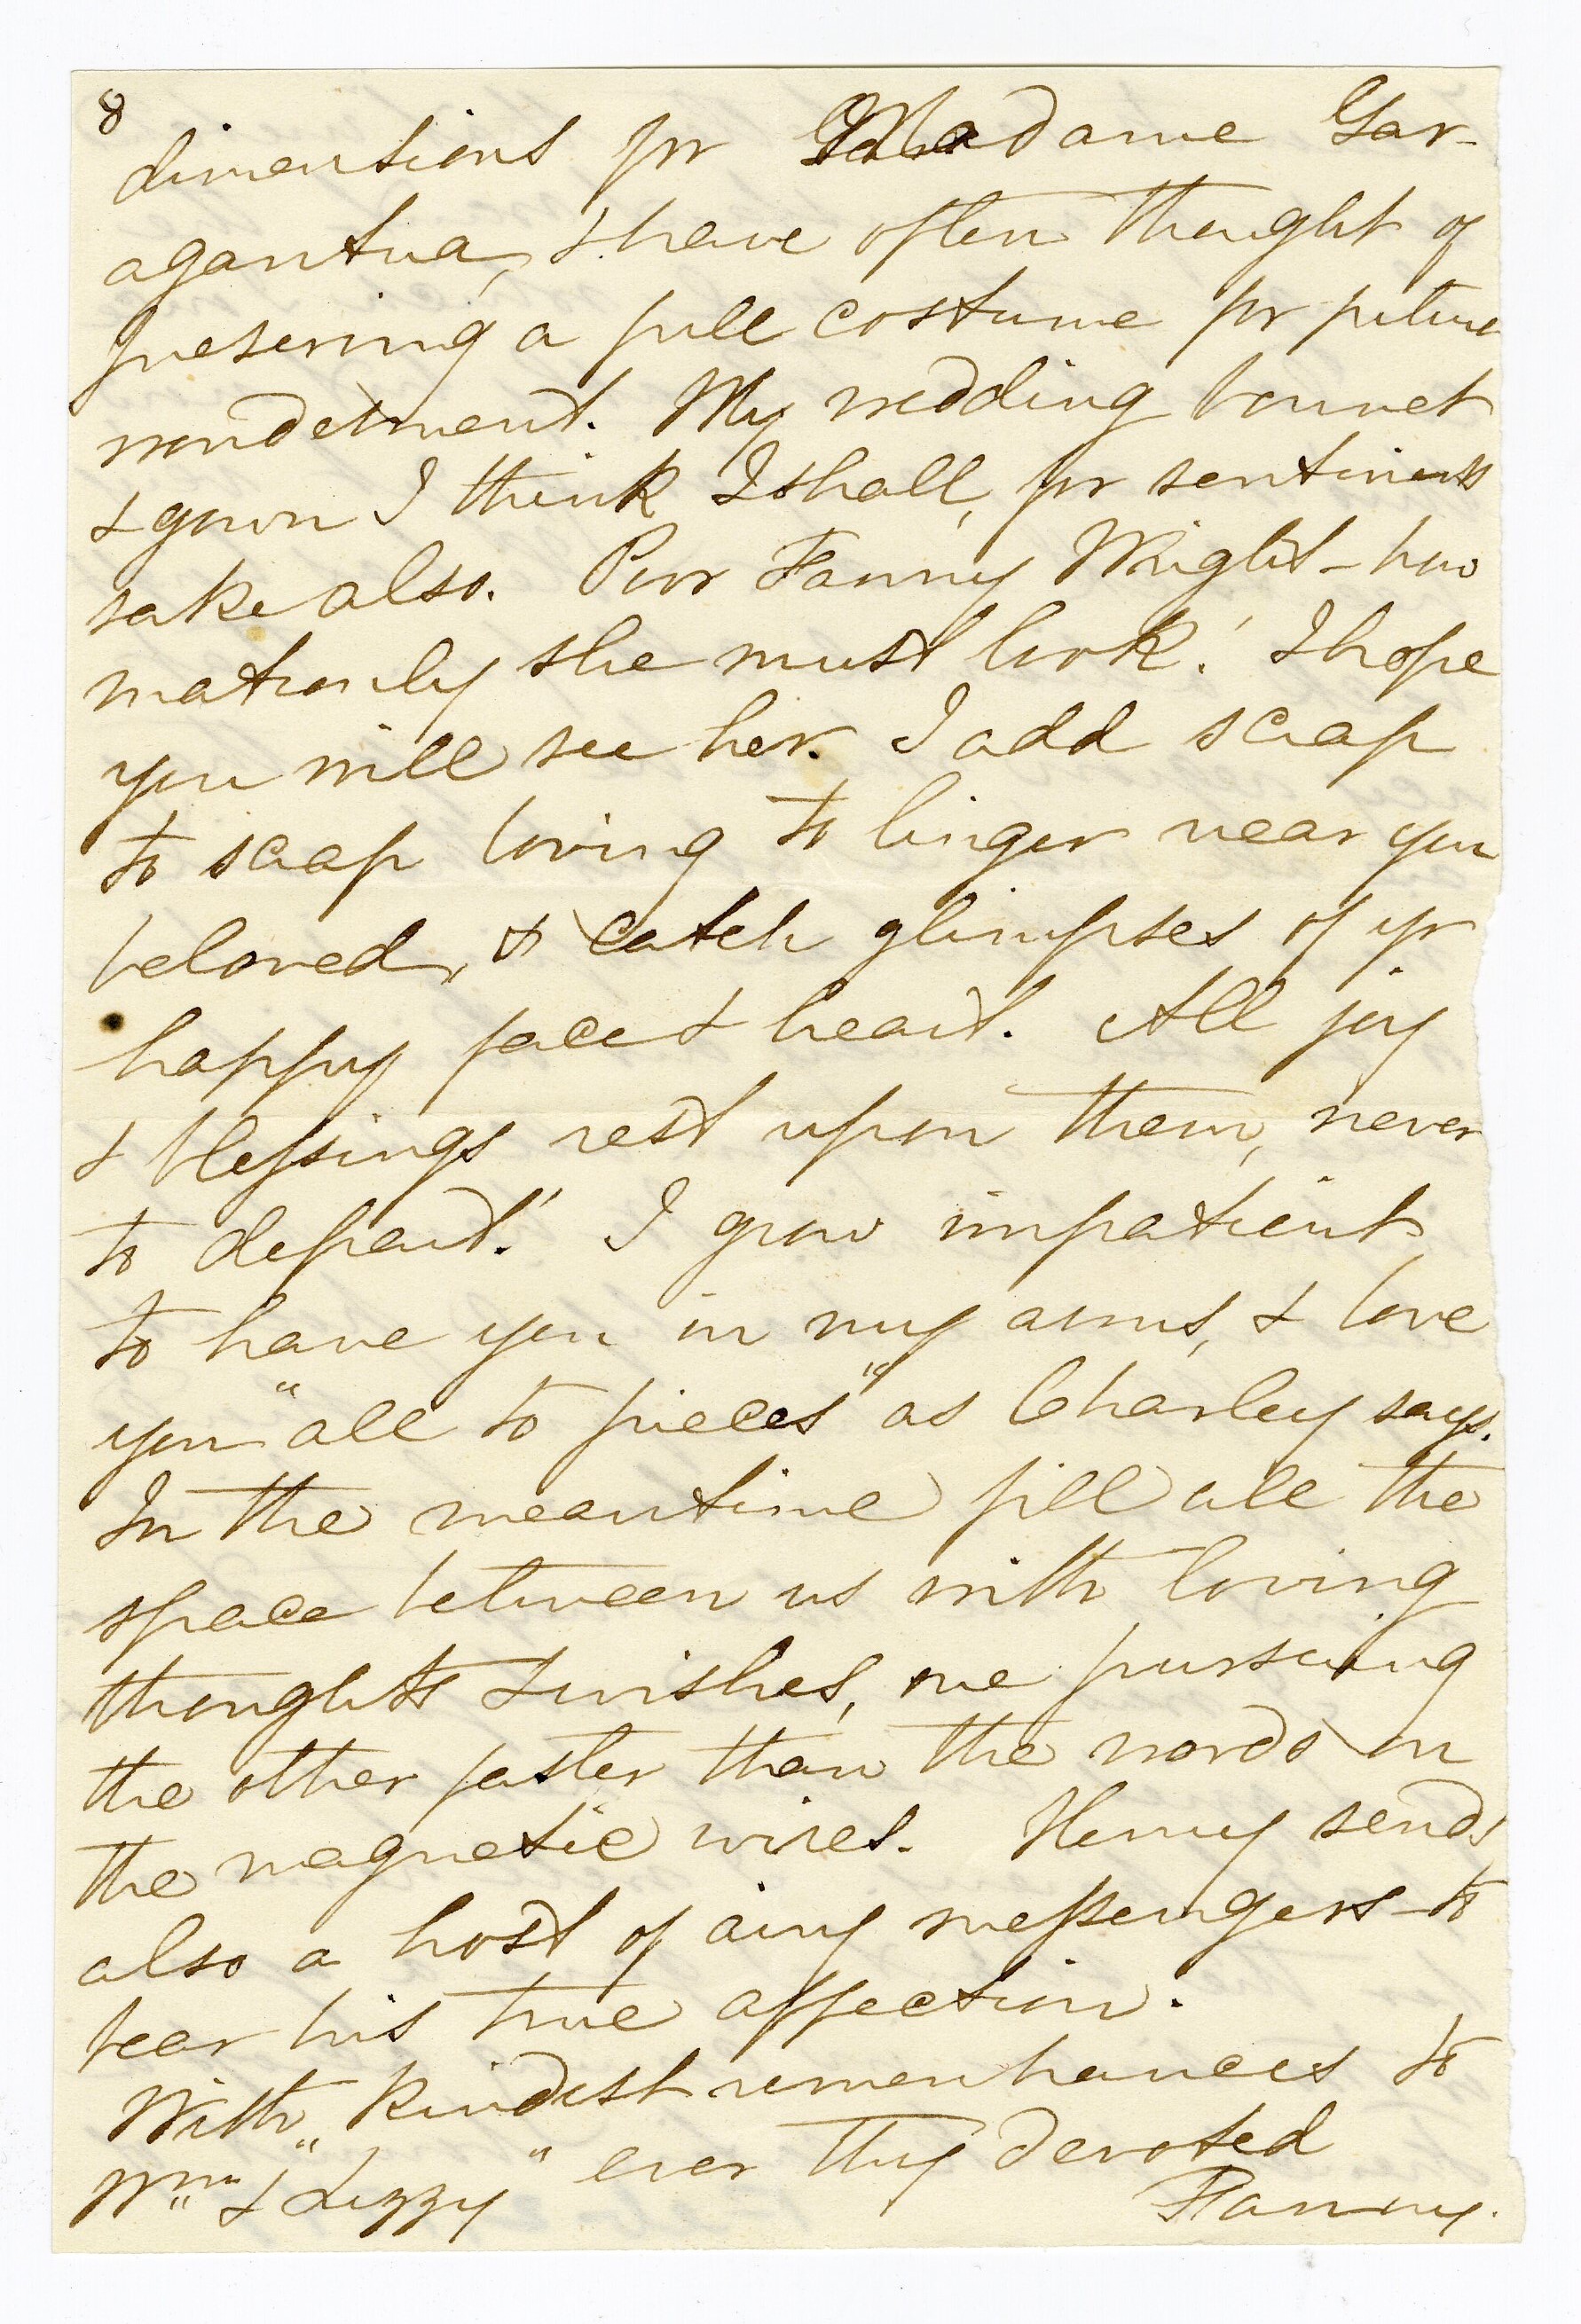 8
dimensions for Madame Gar-
agantua, & have often thought of
preserving a full costume for future
wonderment. My wedding bonnet
& gown I think I shall, for sentiments
sake also. Poor Fanny Wright – how
matronly she must look! I hope
you will see her. I add scrap
to scrap loving to linger near you
beloved, & catch glimpses of yr
happy face & heart. All joy
& blessings rest upon them, never
to depart! I grow impatient
to have you in my arms, & love
you "all to pieces" as Charley says.
In the meantime fill all the
space between us with loving
thoughts & wishes, one pursuing
the other faster than the words on
the magnetic wires. Henry sends
also a host of airy messengers to
bear his true affection.
With kindest remembrances to
Wm & "Lizzy" ever thy devoted
Fanny.